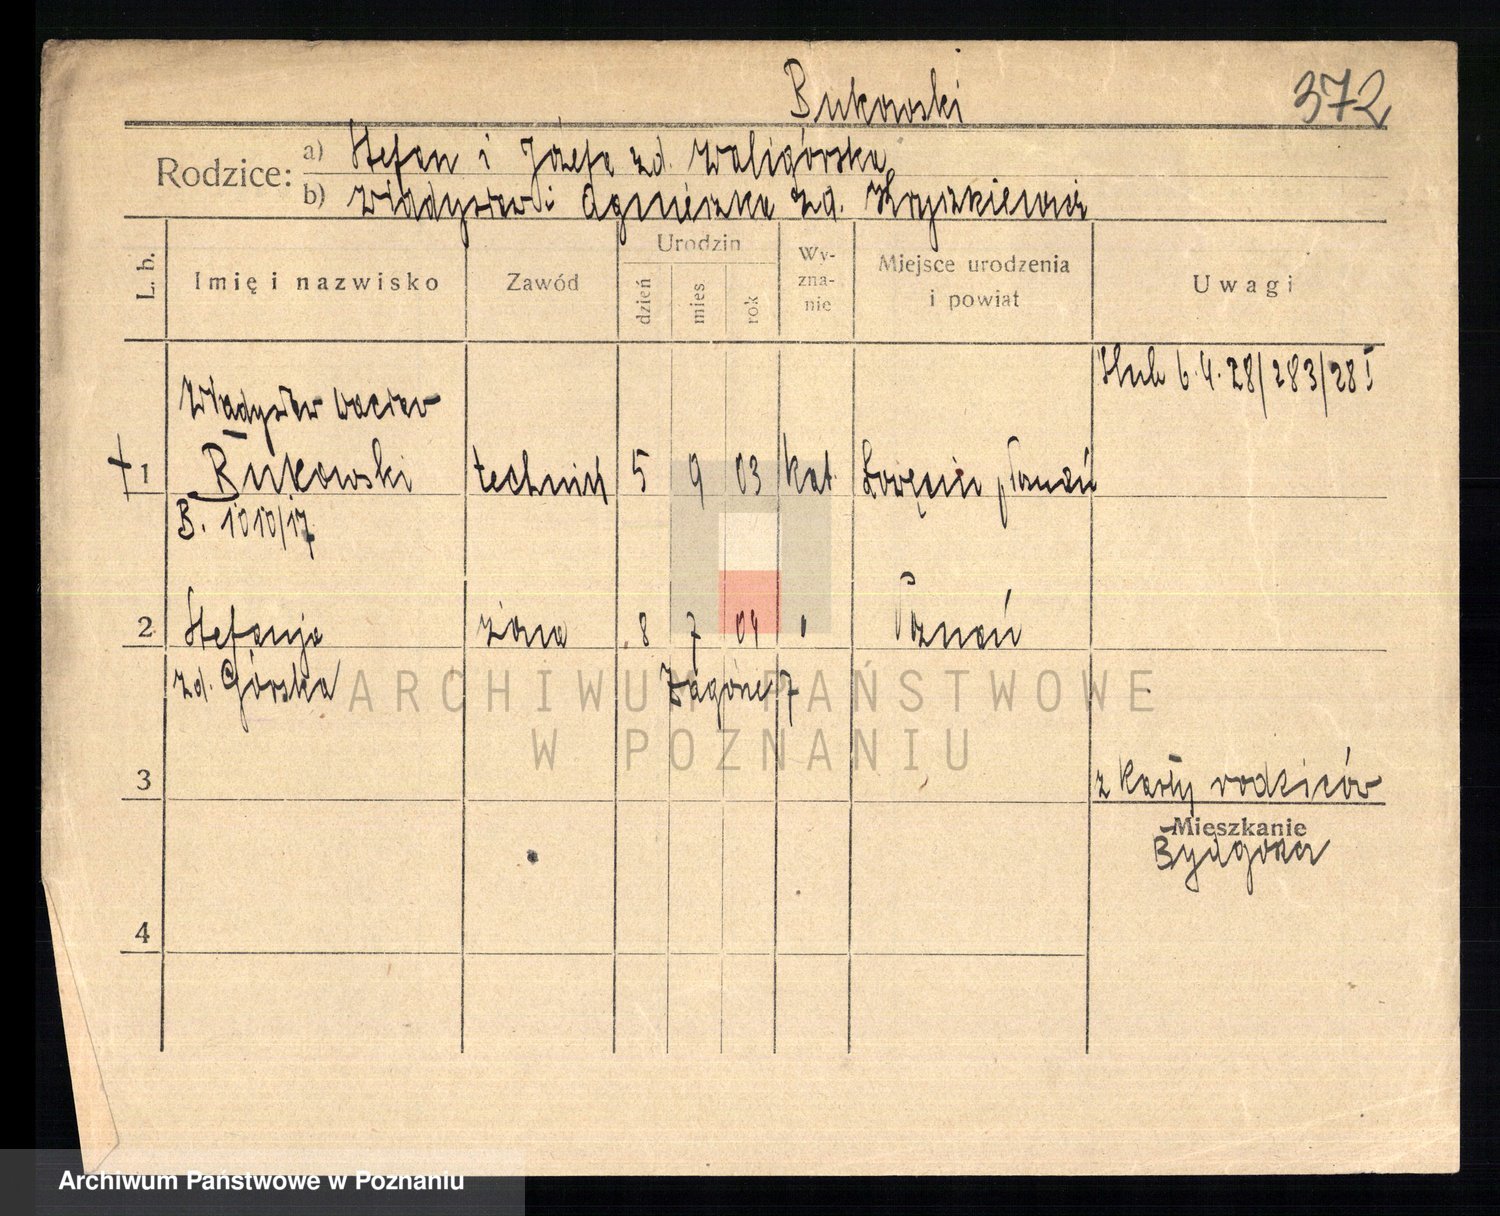 Bukowski
372
Rodzice:
a) Stefan i Józefa zd. Waligórska
b) Władysław i Agnieszka zd. Kryszkiewicz
L. b.
Imię i nazwisko
Zawód
Urodzin
dzień
mies
rok
Wy-
zna-
nie
Miejsce urodzenia
i powiat
Uwagi
Ślub 6.4.28/283/28 I
Władysław Wacław
1 Bukowski technik 5 9 03 kat. Poznań
B. 1010/17
2 Stefanja żona 8 7 04 " Poznań
zd. Górska
7
3
z karty rodziców
Mieszkanie
4
ARCHIWUM PAŃSTWOWE
W POZNANIU
Archiwum Państwowe w Poznaniu